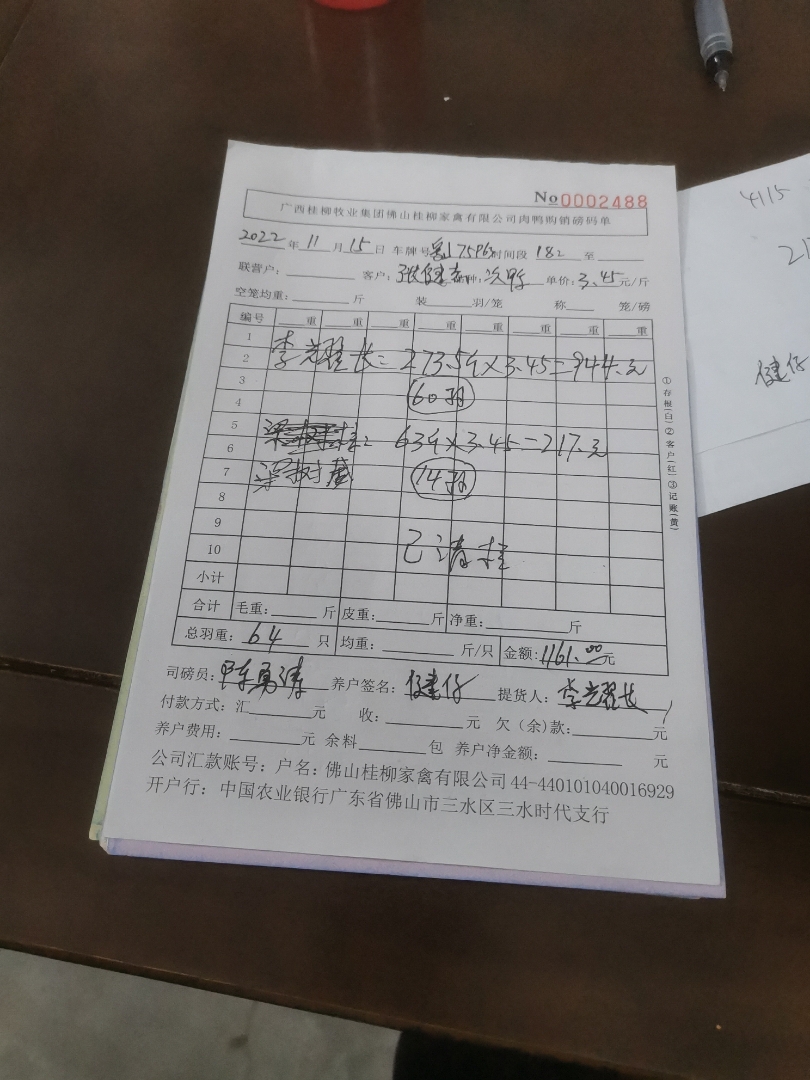 No 0002488
广西桂柳牧业集团佛山桂柳家禽有限公司肉鸭购销磅码单
2022 年 11 月 15 日 车牌号 时间段 182 至
联营户: 客户: 张健 种: 单价: 3.45 元/斤
空笼均重: 斤 装 羽/笼 称 笼/磅
编号 重 重 重 重 重 重 重 重
1
2 李 长= 273.5斤×3.45=944.元
3
4 60羽
5
6 63斤×3.45=217.元
7 梁树 14羽
8
9
10 已清
小计
合计 毛重: 斤 皮重: 斤 净重: 斤
总羽重: 64 只 均重: 斤/只 金额: 1161.00元
司磅员: 陈勇涛 养户签名: 健仔 提货人: 李 长
付款方式: 汇 元 收: 元 欠(余)款: 元
养户费用: 元 余料 包 养户净金额: 元
公司汇款账号: 户名: 佛山桂柳家禽有限公司 44-440101040016929
开户行: 中国农业银行广东省佛山市三水区三水时代支行
①存根(白)②客户(红)③记账(黄)
4115
21
健仔